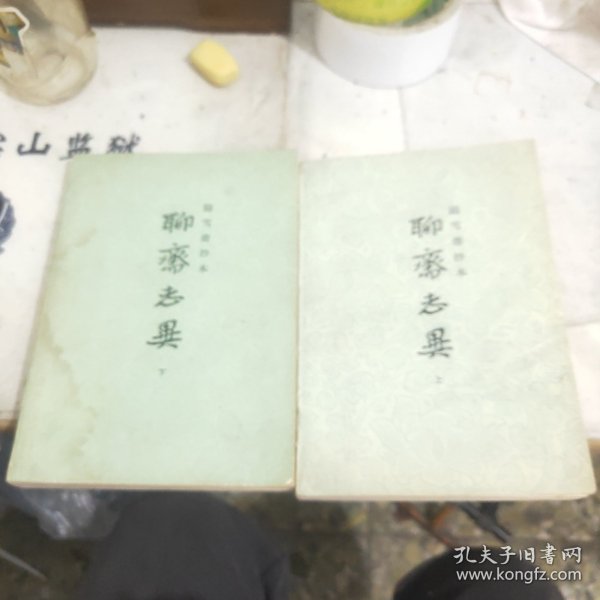 山监狱
铸雪斋抄本
聊斋志异
下
铸雪斋抄本
聊斋志异
上
孔夫子旧书网
www.kongfz.com